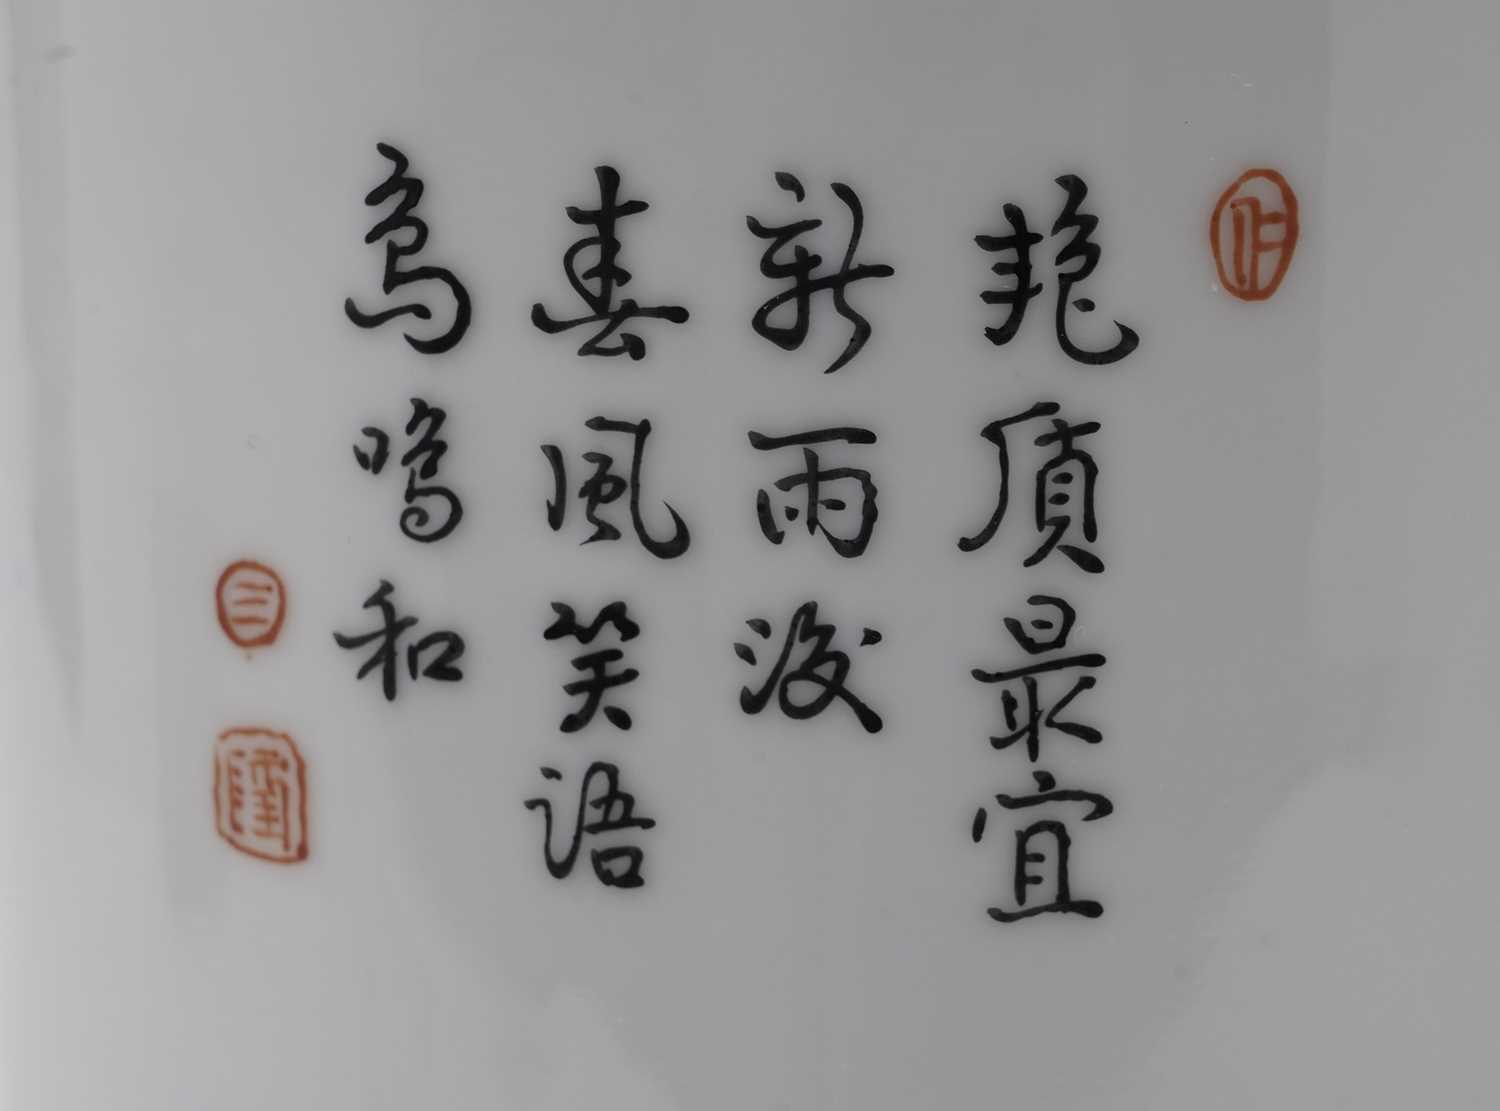 艳質最宜
新雨後
春風笑語
鳥鳴和